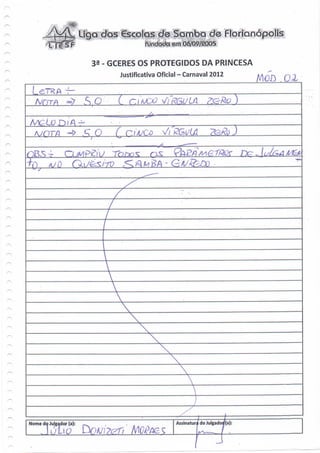 Liga das Escolas de Samba de Florianópolis
LIESF
fundada em 06/09/2005
3ª - GCERES OS PROTEGIDOS DA PRINCESA
Justificativa Oficial – Carnaval 2012
MÓD. 02
LETRA -
NOTA → 5,0 (CINCO VÍRGULA ZERO)
MELODIA -
NOTA → 5,0 (CINCO VÍRGULA ZERO)
OBS - CUMPRIU TODOS OS PARÂMETROS DE JULGAMEN
TO, NO QUESITO SAMBA-ENREDO.
Nome do Julgador (a): Assinatura do Julgador(a):
JÚLIO DONIZETI MORAES